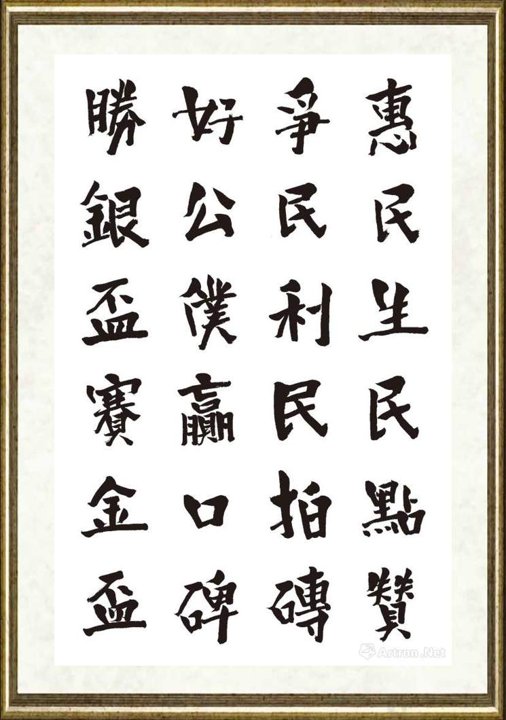 惠民生民點贊
爭民利民拍磚
好公僕贏口碑
勝銀盃賽金盃
Artron.Net